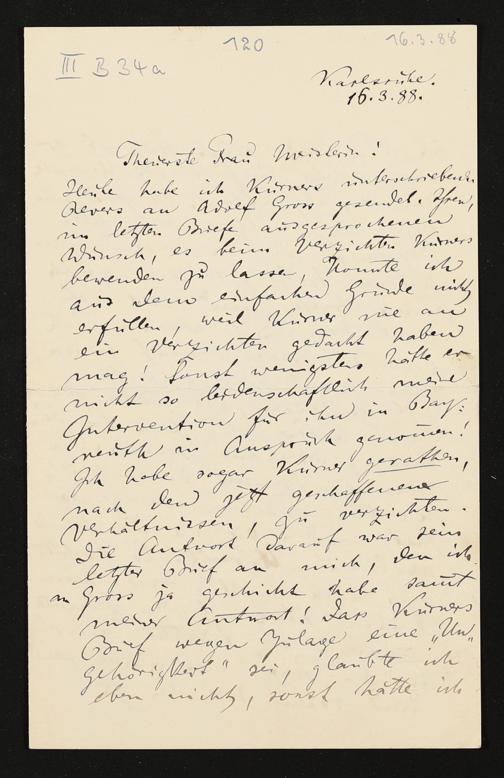 120
16.3.88
III B 34a
Karlsruhe.
16.3.88.
Theuerste Frau Meisterin!
Heute habe ich Kürners unterschriebenen
Revers an Adolf Gross gesendet. Ihren,
im letzten Briefe ausgesprochenen
Wunsch, es beim Verzichten Kürners
bewenden zu lassen, konnte ich
aus dem einfachen Grunde nicht
erfüllen, weil Kürner nie an
ein Verzichten gedacht haben
mag! Sonst wenigstens hätte er
nicht so leidenschaftlich meine
Intervention für ihn in Bay=
reuth in Anspruch genommen!
Ich habe sogar Kürner gerathen,
nach den jetzt geschaffenen
Verhältnissen, zu verzichten.
Die Antwort darauf war sein
letzter Brief an mich, den ich
Gross ja geschickt habe samt
meiner Antwort! Dass Kürners
Brief wegen Zulage eine „Un"
gehörigkeit" sei, glaubte ich
eben nicht, sonst hätte ich